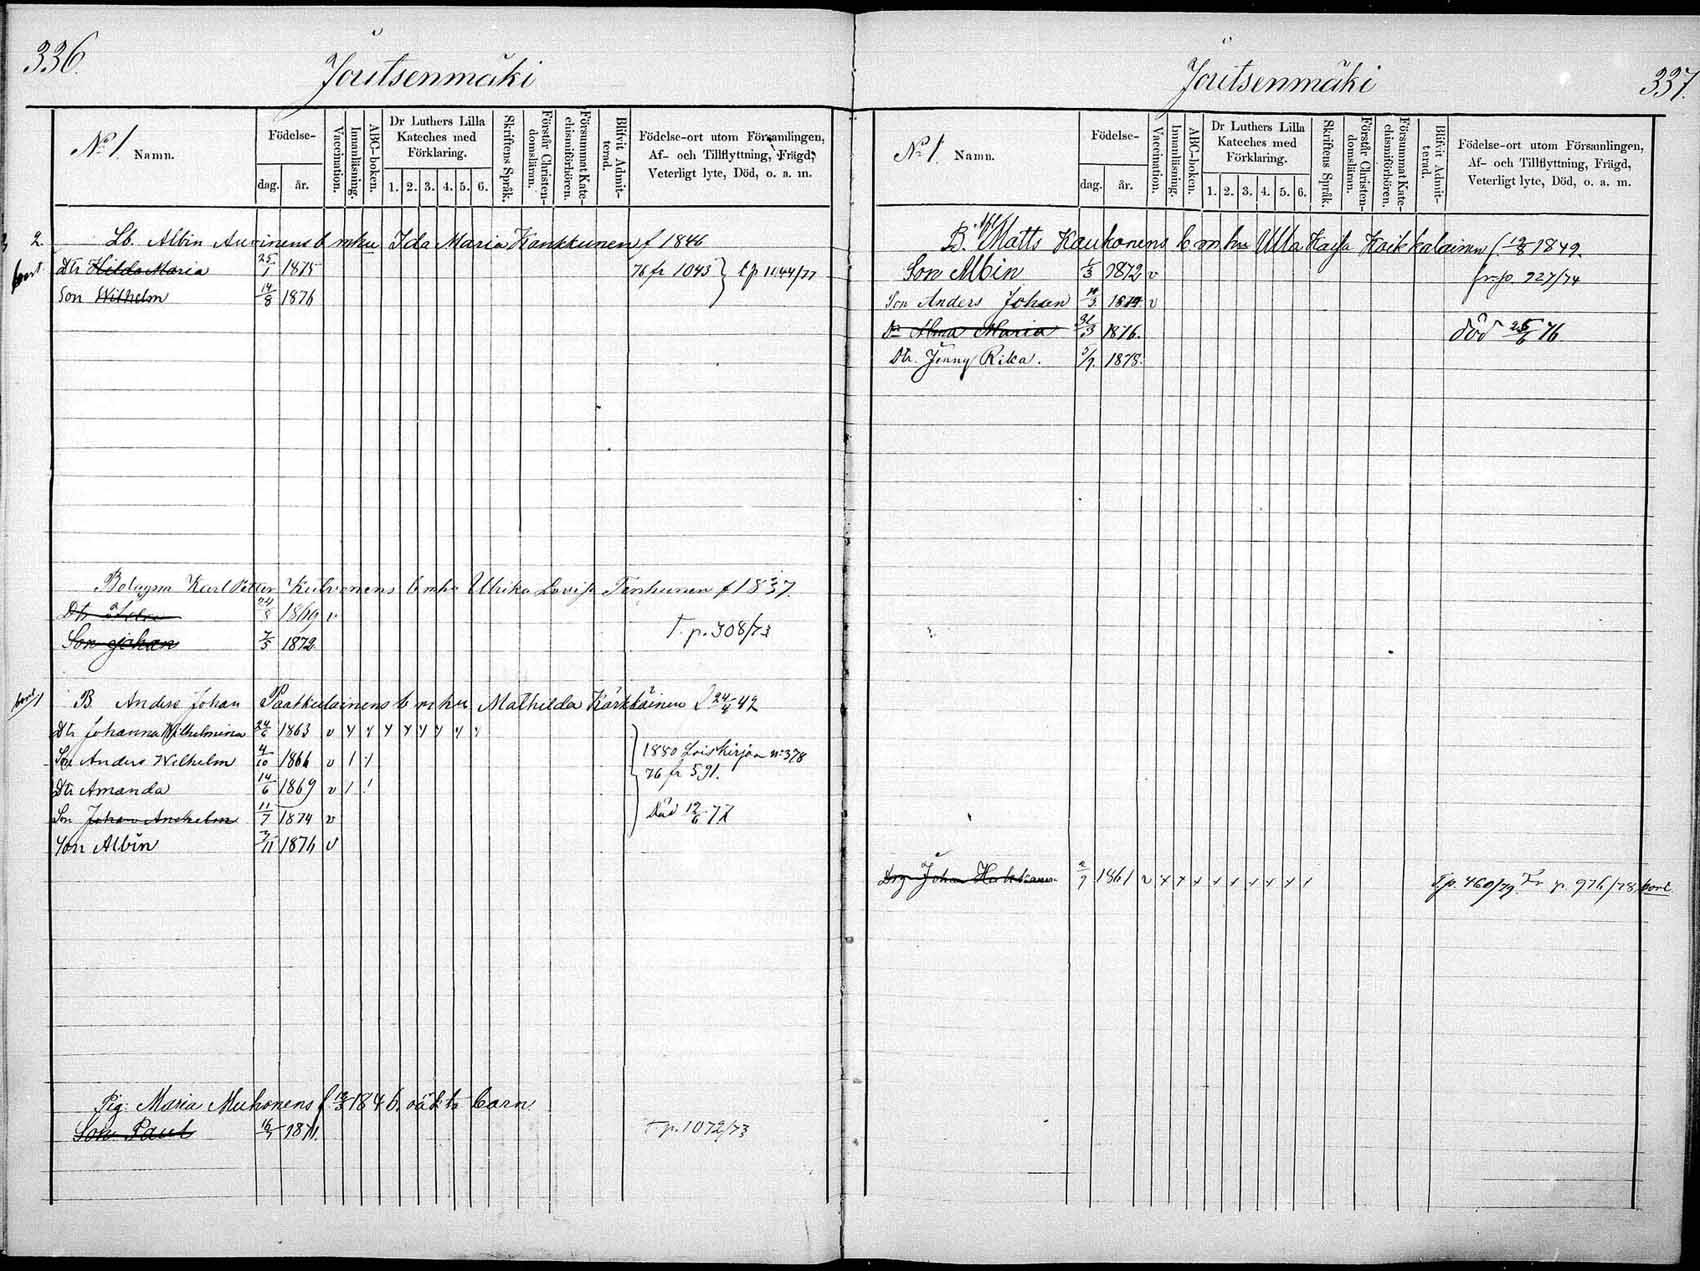 336.
Joutsenmäki
N:o 1. Namn.
Födelse-
dag. år.
Vaccination.
Innanläsning.
ABC-boken.
Dr Luthers Lilla
Kateches med
Förklaring.
1. 2. 3. 4. 5. 6.
Skriftens Språk.
Förstår Christen-
domslänn.
Försummat Kate-
chismiförhören.
Blifvit Admit-
terad.
Födelse-ort utom Församlingen,
Af- och Tillflyttning, Frägd,
Veterligt lyte, Död, o. a. m.
2. Lb. Albin Auvinens b m hu Ida Maria Kankkunen f 1846
bort Dtr Hilda Maria 25/1 1875 76 fr 1043 t p 1144/77
Son Wilhelm 14/8 1876
Bolagsm Karl Petter b m hu Ulrika Lovisa Tenhunen f 1837
Dtr 1869 v
Son Johan 7/5 1872 T. p. 308/73
B. Anders Johan Paatkulainens b m hu Mathilda Kärkkäinen f 24/4 42
Dtr Johanna Wilhelmina 24/6 1863 v
Son Anders Wilhelm 4/10 1866 v 1850 Loiskirjan n:o 378
76 fr 591.
Dtr Amanda 14/6 1869 v
Son Johan Anshelm 11/7 1874 v Död 12/6 77
Son Albin 3/11 1876 v
Pig. Maria Muhonens f 12/3 1846. oäkta barn
Son Paul 1871. T. p. 1072/73
337.
Joutsenmäki
N:o 1. Namn.
Födelse-
dag. år.
Vaccination.
Innanläsning.
ABC-boken.
Dr Luthers Lilla
Kateches med
Förklaring.
1. 2. 3. 4. 5. 6.
Skriftens Språk.
Förstår Christen-
domslänn.
Försummat Kate-
chismiförhören.
Blifvit Admit-
terad.
Födelse-ort utom Församlingen,
Af- och Tillflyttning, Frägd,
Veterligt lyte, Död, o. a. m.
B. Matts Kauhonens b m hu Ulla Kaisa Haikkalainen f. 12/8 1849.
Son Albin 1/3 1872 v fr. p. 927/74
Son Anders Johan 1874 v
Dr Alma Maria 31/3 1876. död 25/6 76
Dtr. Jenny Rika. 5/7. 1878.
Drg Johan 2/7 1861 v T. p. 460/79 Fr p. 976/78 bort